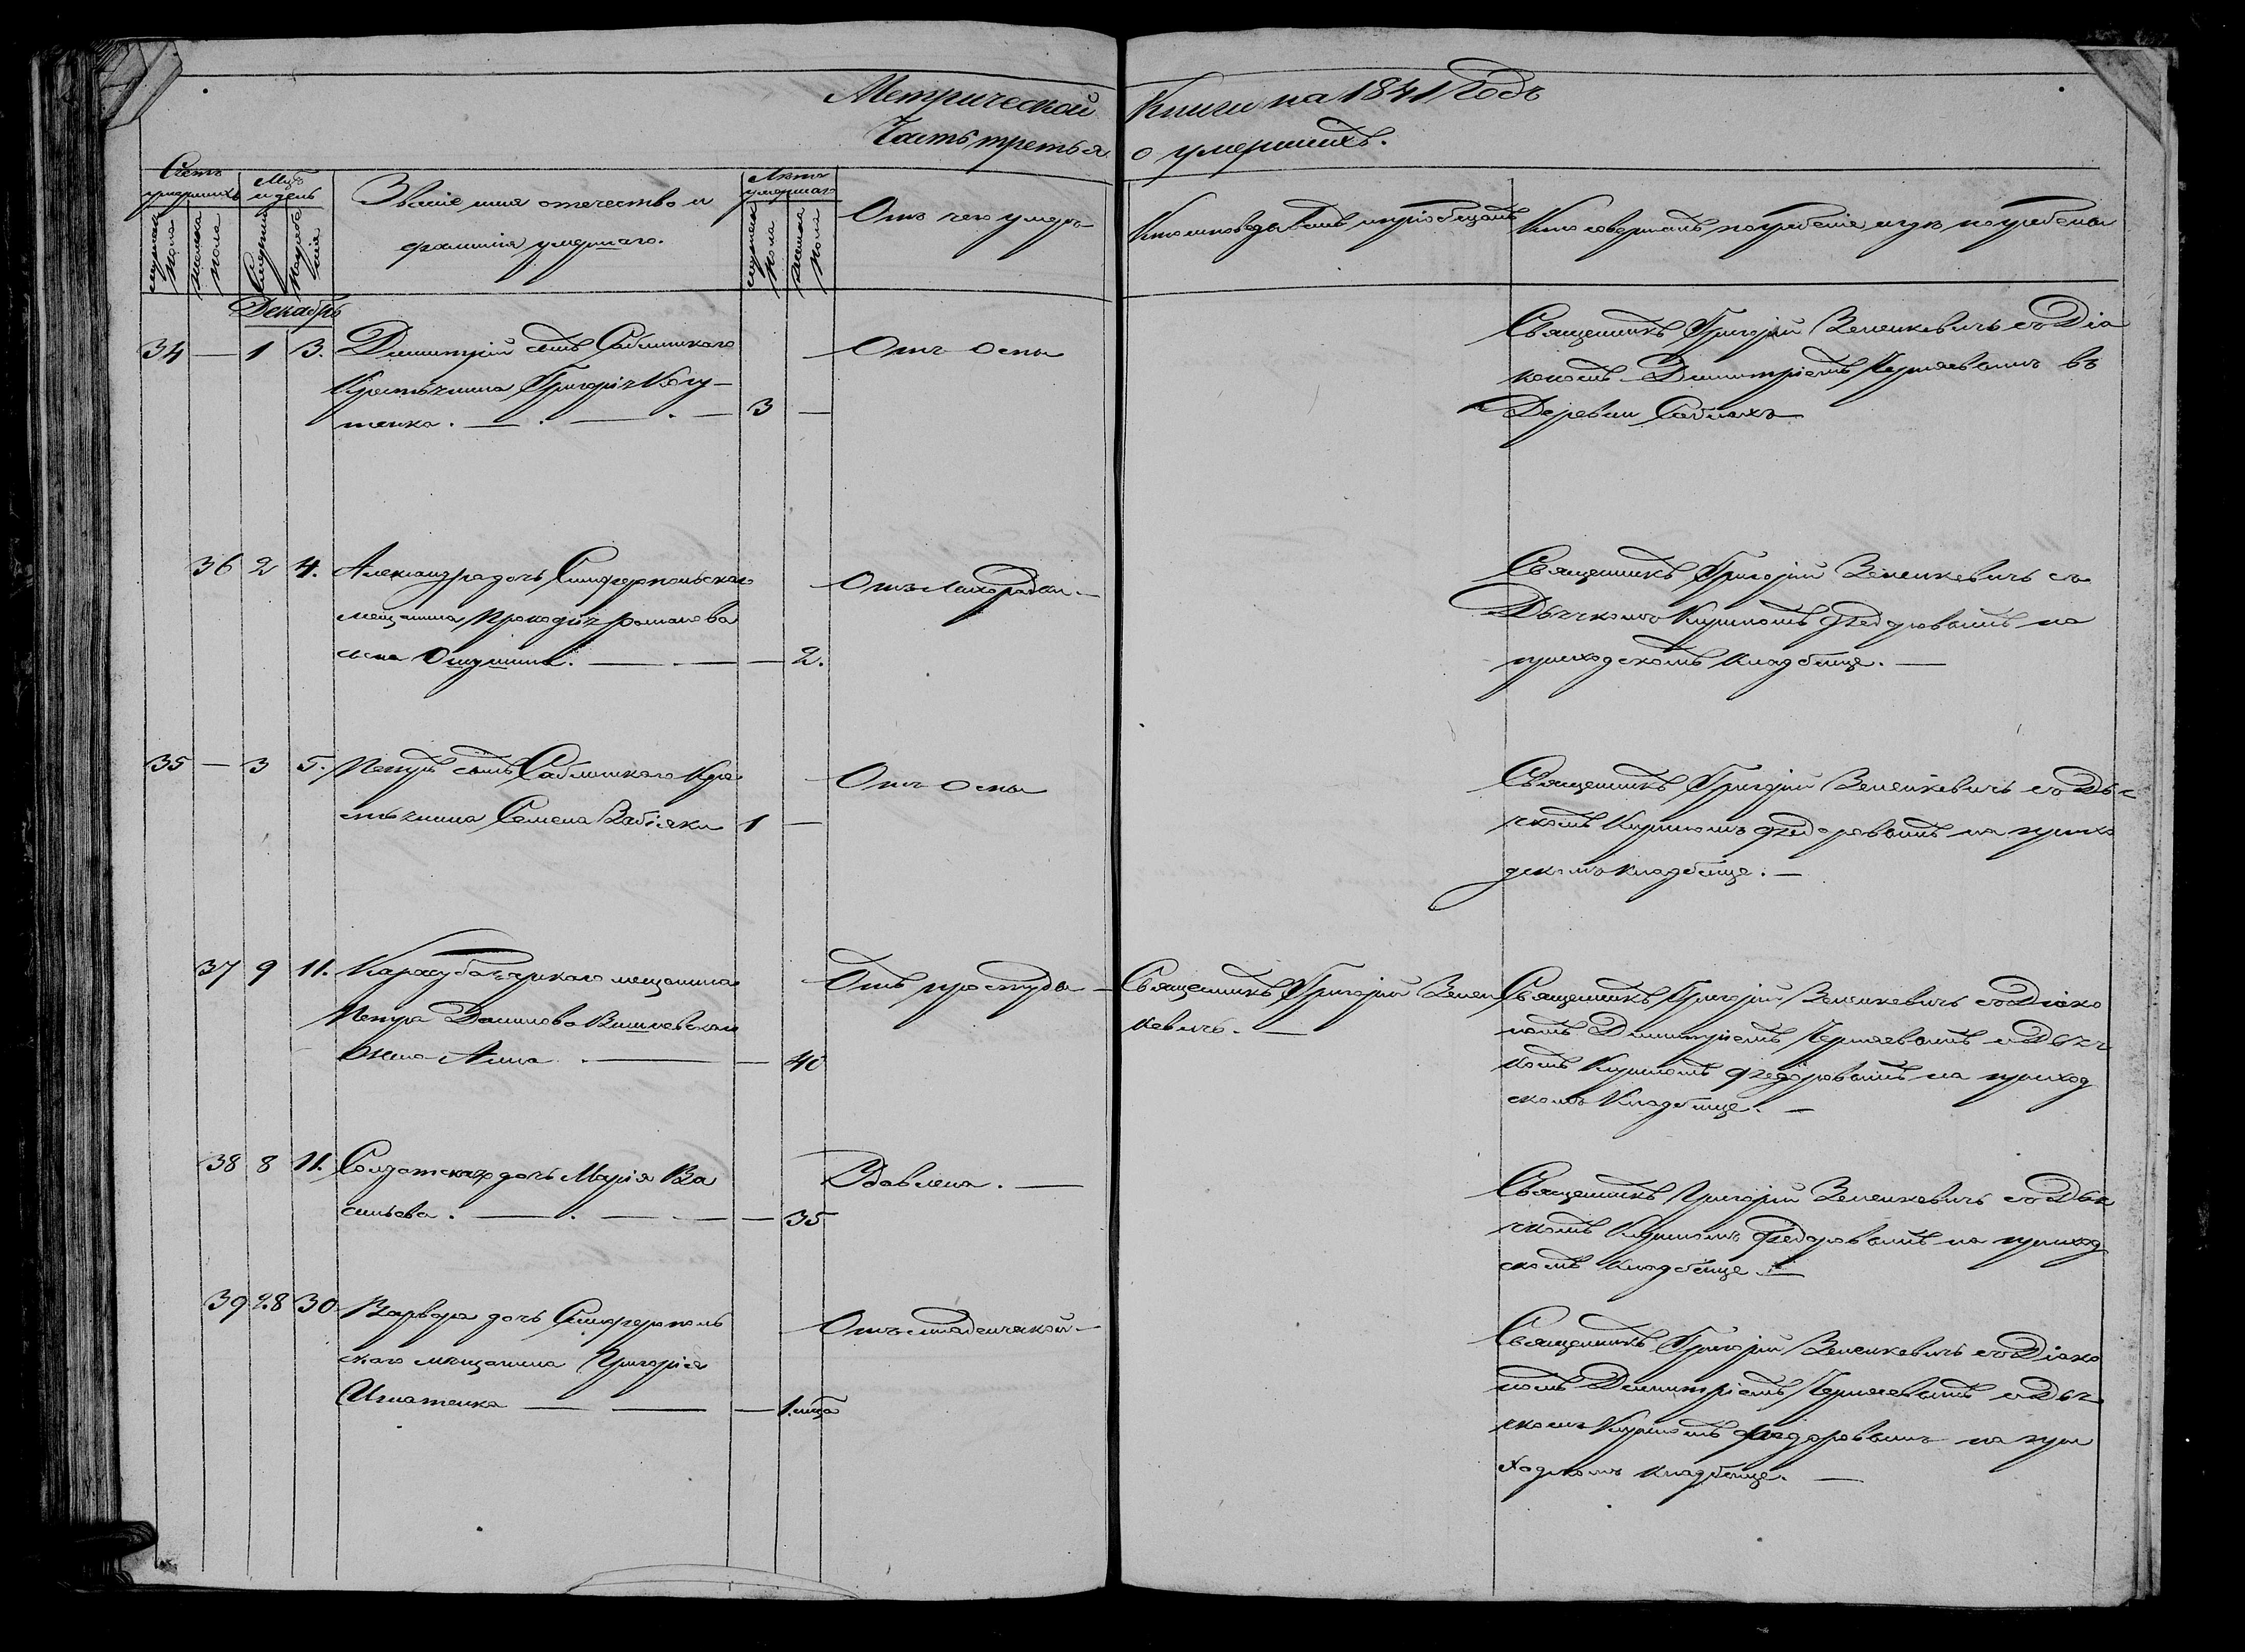 Метрической Книги на 1841 Годъ
Часть третья о умершихъ.
Счетъ умершихъ
мужска пола
женска пола
Мцъ и день
Смерти
Погребенія
Званіе имя отечество и
фамилія умершаго.
Лѣта умершаго
мужеска пола
женска пола
Отъ чего умеръ
Кто исповѣдывалъ и пріобщалъ
Кто совершалъ погребеніе и гдѣ погребены
Декабрь
34 — 1 3. Димитрій сынъ Саблынскаго
Крестьянина Григорія Когу-
тенка. — . — . — 3 —
Отъ Оспы
Священникъ Григорій Зененкевичъ съ Діа
кономъ Димитріемъ Чернявымъ въ
Деревни Саблахъ —
36 2 4. Александра дочь Симферопольскаго
мещанина Прокофія Романова
сына — . — — 2.
Отъ Лихорадки. —
Священникъ Григорій Зененкевичъ съ
Дьячкомъ Куриломъ Федоровымъ на
приходскомъ Кладбище. —
35 — 3 5. Петръ сынъ Саблынскаго Кре
стьянина Семена Забіяки 1 —
Отъ Оспы
Священникъ Григорій Зененкевичъ со Дья
чкомъ Курилломъ Федоровымъ на прихо
дскомъ кладбище. —
37 9 11. Карасубазарскаго мещанина
Петра Данилова Вишневскаго
Жена Анна. — — 40
Отъ простуды —
Священникъ Григорій Зенен
кевичъ. —
Священникъ Григорій Зененкевичъ со Діако
номъ Димитріемъ Чернявымъ и Дьяч
комъ Курилломъ Федоровымъ на приход
скомъ Кладбище. —
38 8 11. Солдатская дочь Марія Ва
сильева. — . — . — — 35
Удавлена. —
Священникъ Григорій Зененкевичъ со Дья
чкомъ Курилломъ Федоровымъ на приход
скомъ Кладбище. —
39 28 30 Варвара дочь Симферополь
скаго мещанина Григорія
Игнатенка — — — 1.мца
Отъ младенческой —
Священникъ Григорій Зененкевичъ со Діако
номъ Димитріемъ Чернявымъ и Дья
чкомъ Курилломъ Федоровымъ на при
ходскомъ кладбище. —